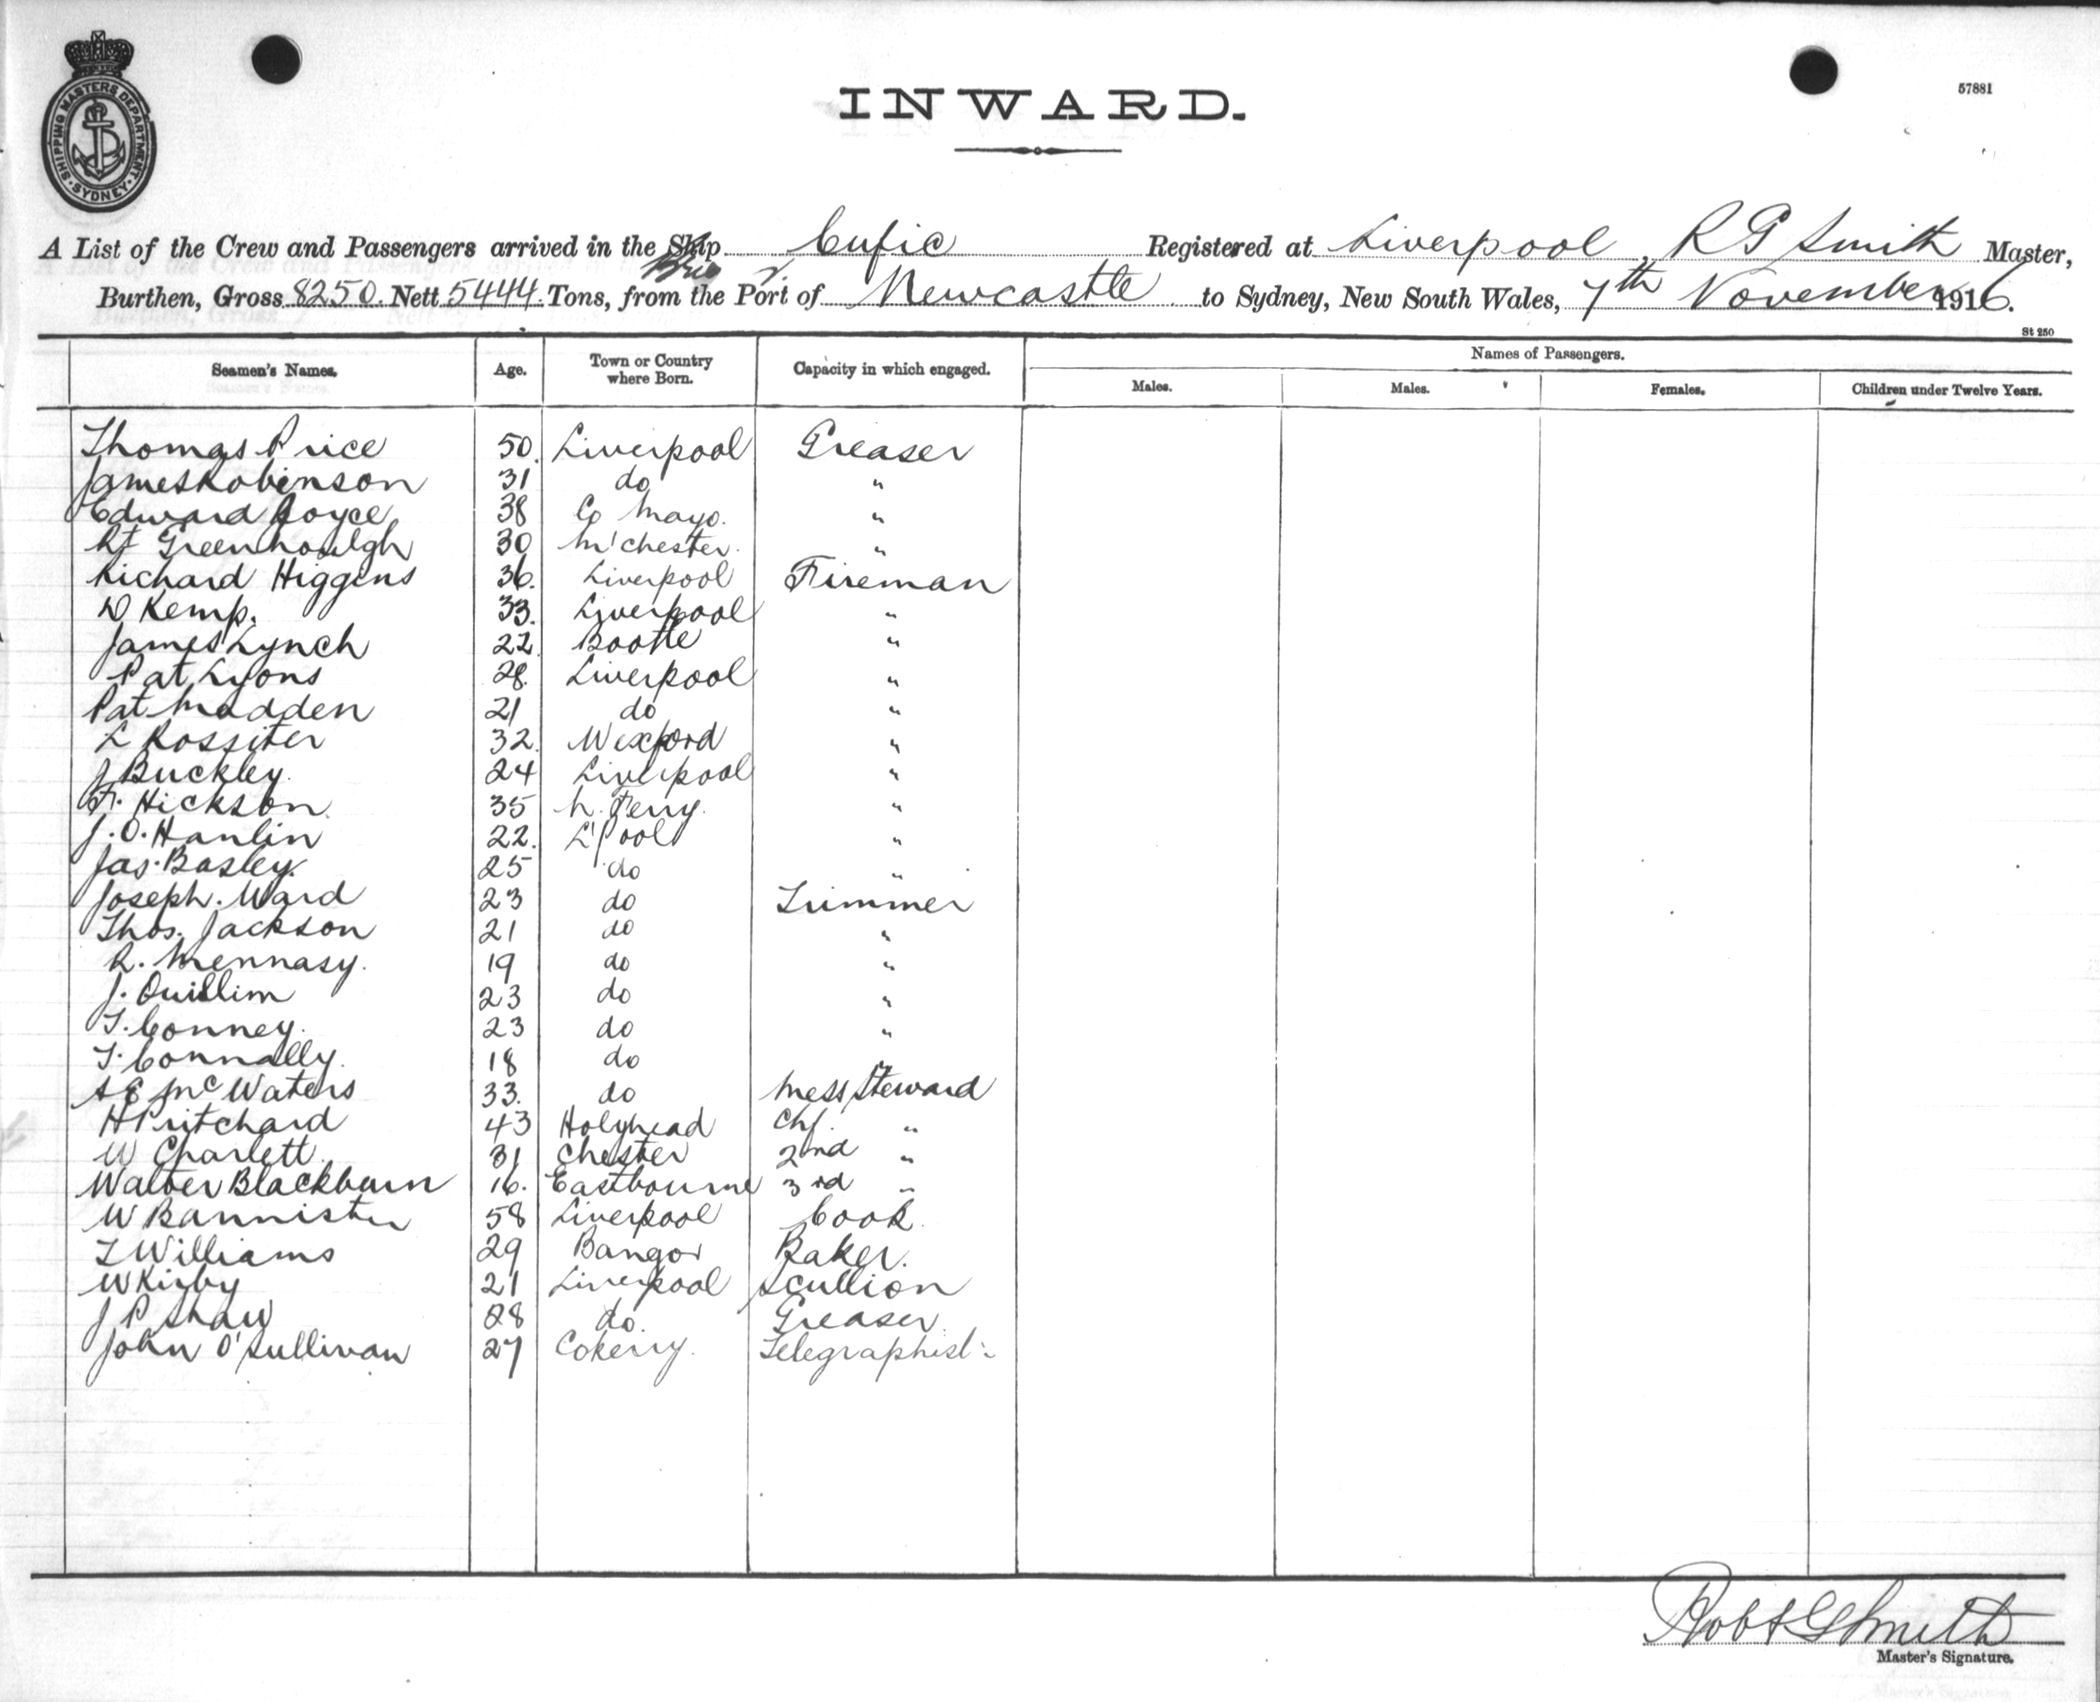 SHIPPING MASTERS DEPARTMENT. SYDNEY.
57881
INWARD.
A List of the Crew and Passengers arrived in the Ship Cufic Registered at Liverpool, R G Smith Master,
Burthen, Gross 8250 Nett 5444 Tons, from the Port of Newcastle to Sydney, New South Wales, 7th November 1916.
St 250
Seamen's Names. Age. Town or Country where Born. Capacity in which engaged. Names of Passengers.
Males. Males. Females. Children under Twelve Years.
Thomas Price 50. Liverpool Greaser
James Robinson 31 do "
Edward Joyce 38 Co Mayo. "
Rt Greenhoulgh 30 M'chester. "
Richard Higgins 36. Liverpool Fireman
D Kemp. 33. Liverpool "
James Lynch 22 Bootle "
Pat Lyons 28. Liverpool "
Pat Madden 21 do "
L Rossiter 32. Wexford "
J Buckley. 24 Liverpool "
F. Hickson. 35 N. Ferry. "
J. O. Hanlin 22. L'Pool "
Jas. Basley. 25 do "
Joseph. Ward 23 do Trimmer
Thos. Jackson 21 do "
R. Mennasy. 19 do "
J. Quillim 23 do "
T. Conney. 23 do "
T. Connally. 18 do "
A E McWaters 33. do Mess Steward
H Pritchard 43 Holyhead Chf. "
W Charlett. 31 Chester 2nd "
Walter Blackburn 16. Eastbourne 3rd "
W Bannister 58 Liverpool Cook.
T Williams 29 Bangor Baker.
W Kirby 21 Liverpool Scullion
J P Shaw 28 do. Greaser
John O'Sullivan 27 CoKerry. Telegraphist
Robt G Smith
Master's Signature.